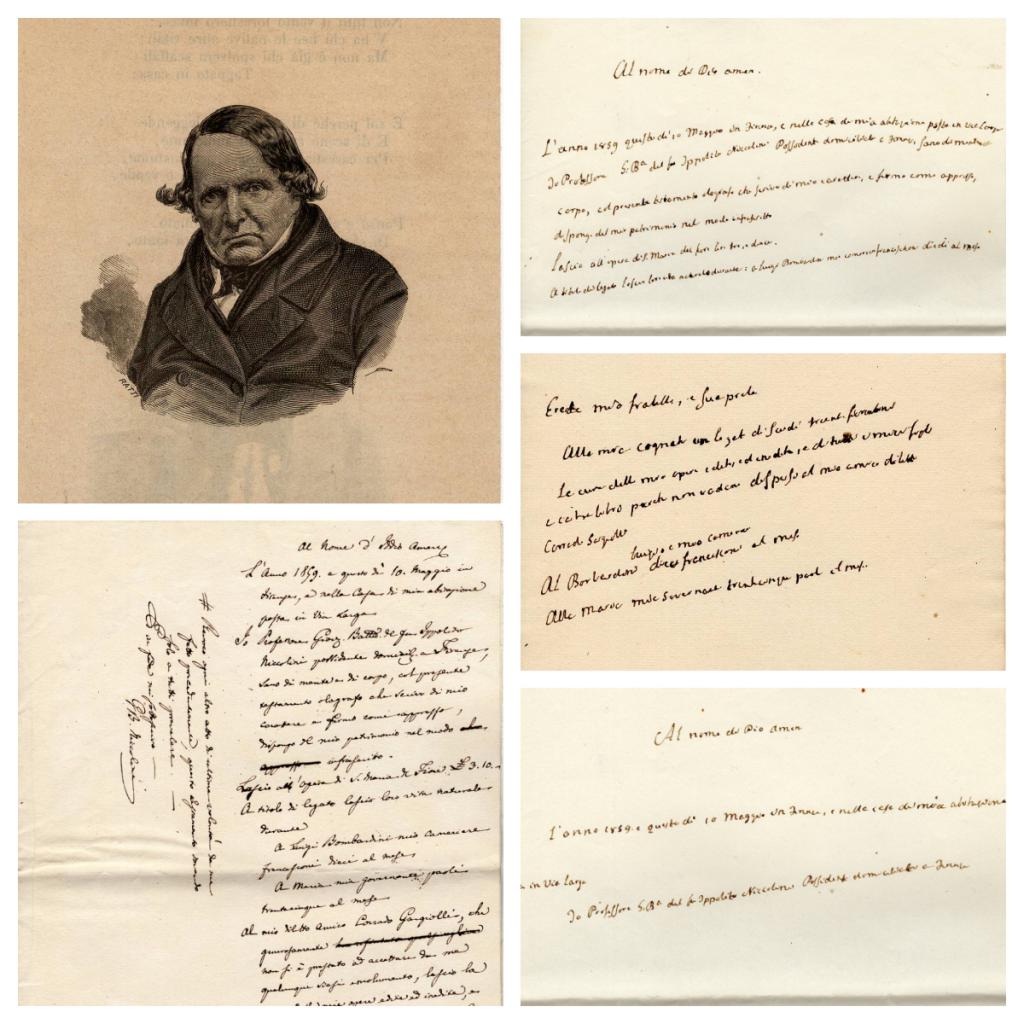 RATTI
Al nome di Dio amen.
L'anno 1859 questo dì 10 Maggio in Firenze, e nelle casa di mia abitazione posta in via Larga
Io Professore G. Bª del fu Ippolito Niccolini Possidente domiciliato a Firenze, sano di mente e
corpo, col presente testamento olografo che scrivo di mio carattere, e firmo come appresso,
dispongo del mio patrimonio nel modo infrascritto
Lascio all'opera di S. Maria del fiore lire tre, e dieci.
A titolo di legato lascio loro vita naturale durante: a Luigi Bombardini mio cameriere francesconi dieci al mese
Erede mio fratello, e sua prole
Alle mie cognate un legat di scudi trecent fiorentini
Le cure delle mie opere edite, ed inedite, e di tutti i miei fogli
e ciche libro perch non vadan dispersi al mio amico diletto
Corrado
Luigi e mio camerier
Al Borbardini dieci francesconi al mese
Alla Maria mia Governante trentacinque paoli il mese.
Al Nome d'Iddio Amen
L'Anno 1859. e questo dì 10. Maggio in
Firenze, e nella Casa di mia abitazione
posta in Via Larga
Io Professore Giov. Batta. del fu Ippolito
Niccolini possidente domicil. a Firenze,
sano di mente e di corpo, col presente
testamento olografo che scrivo di mio
carattere e firmo come appresso,
dispongo del mio patrimonio nel modo
appresso infrascritto.
Lascio all'Opera di S. Maria del Fiore £ 3.10.
A titolo di legato lascio loro vita naturale
durante
A Luigi Bombardini mio cameriere
francesconi dieci al mese
A Maria mia governante paoli
trentacinque al mese
Al mio diletto Amico Corrado Gargiolli, che
generosamente
non si è prestato ad accettare da me
qualunque siasi emolumento, lascio la
mie opere edite ed inedite, e
# Revoco ogni altro atto di ultima volontà da me
fatto precedentemente, questo solamente dovendo
solo a tutti prevalere.
GB. Niccolini
Al nome di Dio amen
L'anno 1859. e questo dì 10 Maggio in Firenze, e nelle casa di mia abitazione
a in Via Larga
Io Professore G. Bª del fu Ippolito Niccolini Possidente domiciliato a Firenze